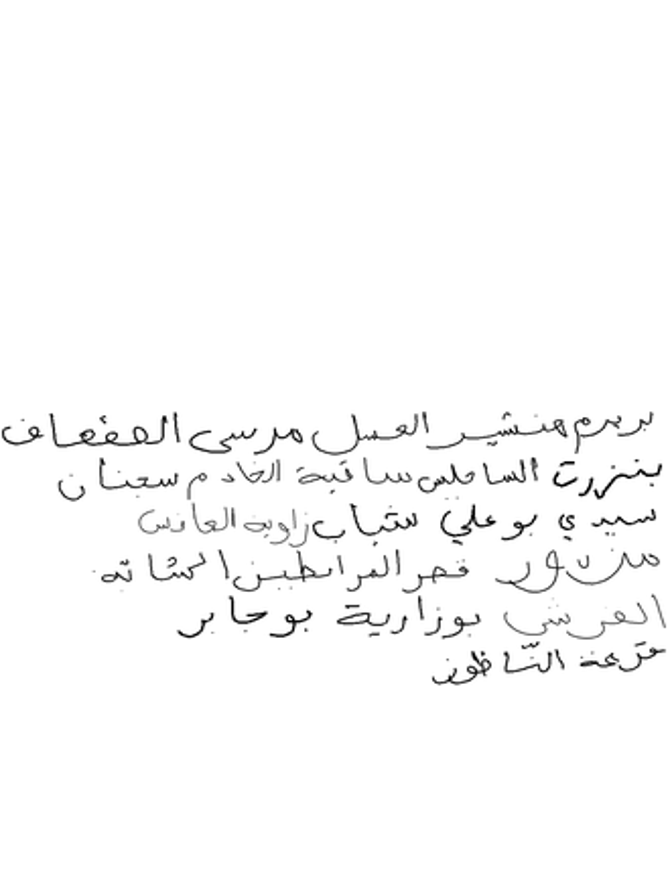 بربرم هنشير العسل مرسى القفعاف
بنزرت الساحلين ساقية الخادم سجنان
سيدي بو علي شباب زاوية العانس
منزل نور قصر المرابطين الكشاتة
العرش بوزارية بوجابر
قرعة الناظور